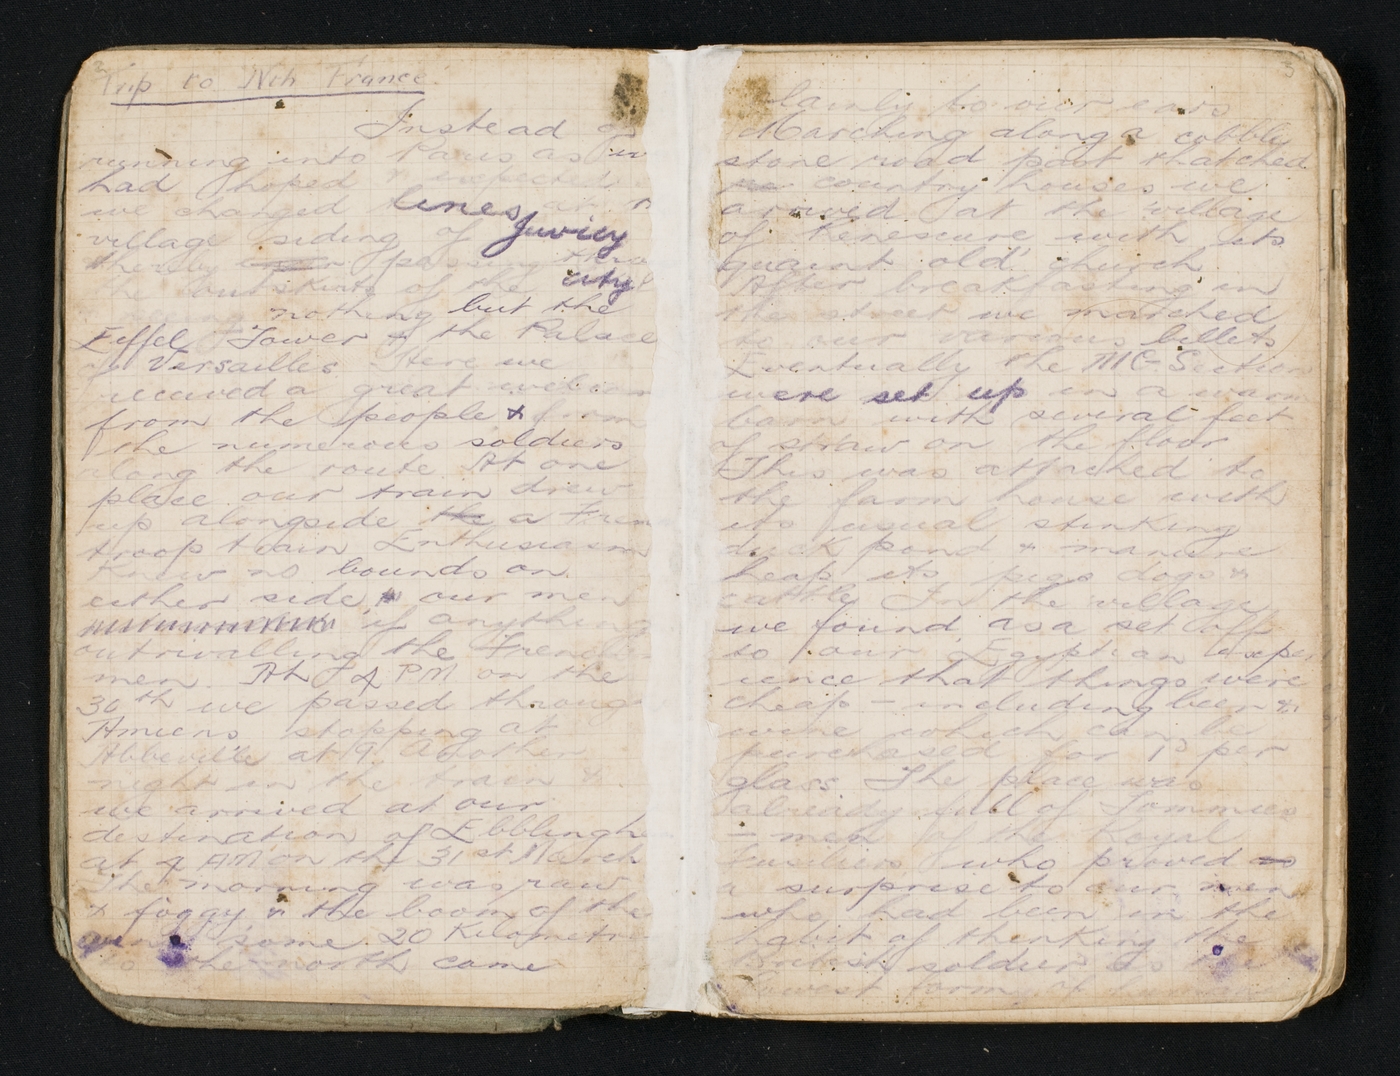 2
Trip to Nth France
Instead of
running into Paris as we
had hoped & expected
we changed lines at a
village siding of Juvicy
thereby passing thro
the outskirts of the city
seeing nothing but the
Eiffel Tower & the Palace
of Versailles Here we
received a great welcom
from the people & from
the numerous soldiers
along the route At one
place our train drew
up alongside the a Fren
troop train Enthusiasm
knew no bounds on
either side & our men
if anything
outrivalling the French
men. At 4 PM on the
30th we passed through
Amiens stopping at
Abbeville at 9. Another
night in the train &
we arrived at our
destination of Ebblingh
at 4 AM on the 31st March
The morning was raw
& foggy & the boom of the
guns some 20 Kilometre
to the north came
3
lainly to our ears
Marching along a cobbly
stone road past thatched
country houses we
arrived at the village
of Renescure with its
quaint old church
After breakfasting in
the street we marched
to our various billets
Eventually the MG Section
were set up in a warm
barn with several feet
of straw on the floor
This was attached to
the farm house with
its usual stinking
duck pond & manure
heap its pigs dogs &
cattle In the village
we found as a set off
to our Egyptian exper
ience that things were
cheap - including beer &
wine which can be
purchased for 1d per
glass The place was
already full of Tommies
- men of the Royal
Fusiliers who proved as
a surprise to our men
who had been in the
habit of thinking the
British soldier as the
lowest form of